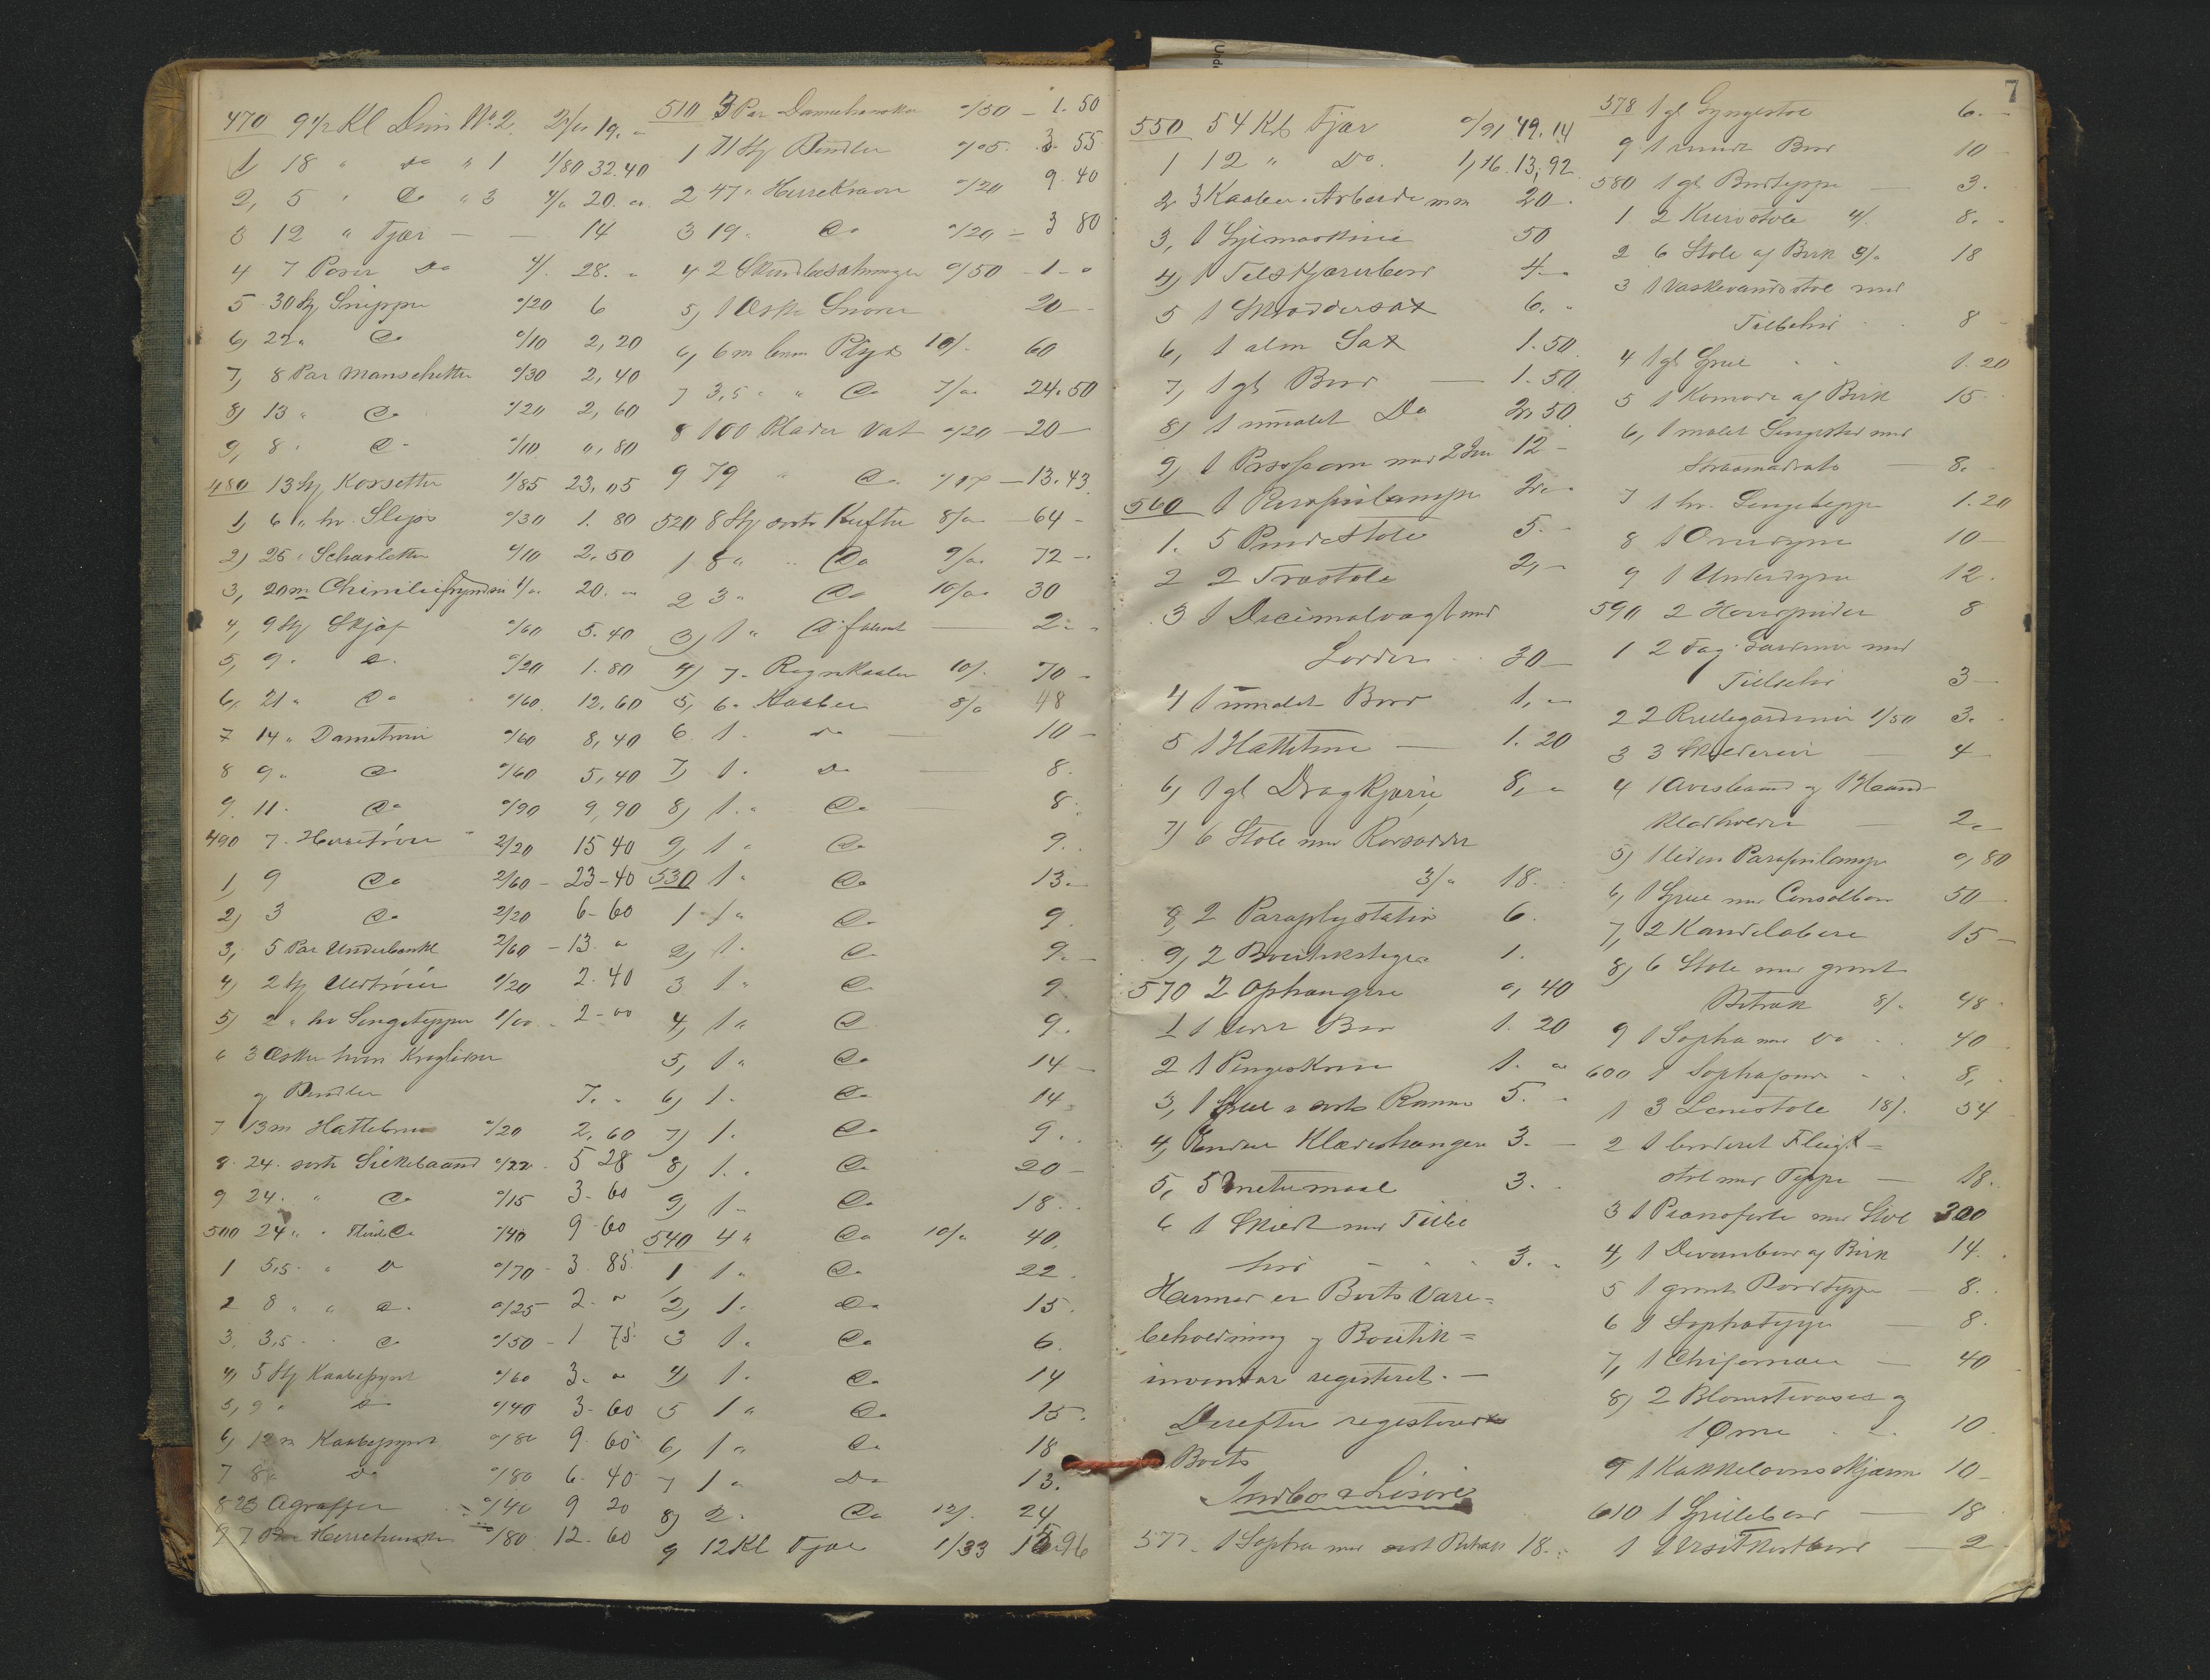 470 9½ Kl Duun No 2. 2/00 19. "
1, 18 " do " 1 1/80 32.40
2, 5 " Do " 3 4/" 20. "
3 12 " Fjær — — 14
4 7 Poser Do 4/. 28. "
5 30 Stk Snipper "/20 6
6, 22 " Do "/10 2,20
7, 8 Par Manschetter "/30 2,40
8) 13 " Do "/20 2,60
9, 8 " Do "/10 ",80
480 13 Stk Korsetter 1/85 23,05
1, 6 " hv. Slips "/30 1.80
2) 25 " Scharletter "/10 2.50
3, 20 m 1/" 20. "
4, 9 Stk Skjøf "/60 5.40
5, 9 " Do "/20 1.80
6, 21 " Do "/60 12,60
7 14 " Dametrøier "/60 8,40
8 9 " Do "/60 5,40
9. 11. Do "/90 9,90
490 7. Herretrøier 2/20 15 40
1, 9 Do 2/60 – 23–40
2) 3 Do 2/20 6–60
3, 5 Par Underbenkl 2/60 – 13. "
4) 2 Stk Uldtrøier 1/20 2.40
5) 2 " hv Sengetepper 1/00 2–00
6 3 Æsker
g Bendler 7. "
7 13 m Hattebrem "/20 2,60
8. 24. sorte Silkebaand "/22. 5 28
9 24. " Do "/15 3–60
500 24 " " Do "/40 9–60
1 5,5. " D "/70 – 3 85
2 8 " " Do "/25 2. "
3. 3,5. " Do "/50 – 1 75
4) 5 Stk Kaabepynt "/60 3. "
5, 9 " Do "/40 3–60
6, 12 m Kaabepynt "/80 9 60
7 8 " Do "/80 6.40
8 23 Agraffer "/40 9 20
9 7 Par Herrehansker 1/80 12.60
510 3 Par Damehansker "/50 – 1.50
1 71 Stk Bendler "/05. 3.55
2 47 " Herrekraver "/20 9.40
3 19. Do "/20 – 3 80
4 2 Skindbesætninger "/50 – 1–"
5) 1 Æske Snorer 20 –
6, 6 m brun Plyds 10/. 60
7 3,5 " " Do 7/" 24.50
8 100 Plader Vat "/20 – 20 –
9 79 " Do "/17 – 13.43
520 8 Stk sorte Kufter 8/" – 64 –
1 8 " " Do 9/" 72 –
2 3 " Do 10/" 30
3) 1 " Do — 2. "
4) 7 " Regnkaaber 10/. 70 –
5, 6 " Kaaber 8/" 48
6. 1. do — 10 –
7, 1. do — 8.
8) 1. " Do 8.
9, 1 " Do 9.
530 1 " Do 13.–
1 1 " Do 9.
2) 1. Do 9.–
3 1 " Do 9
4, 1 " Do 9.
5, 1 " Do 14 –
6) 1. Do 14
7) 1. Do 9.
8) 1. " Do 20 –
9) 1 " Do 18.
540 4 " Do 10/" 40.
1 1 " Do 22.
2) 1. Do 15.
3 1. Do 6.
4) 1. Do 14
5 1 " Do 15.
6, 1 " Do 18
7 1 " Do 13.
8) 2. Do 12/. 24
9 12 Kl Fjær 1/33 15.96
7
550 54 Kl Fjær "/91 49.14
1 12 " Do. 1,16. 13,92
2 3 Kaaber. Arbeide m m 20.
3, 1 Symaskine 50
4) 1 Tilskjærerbord 4.–
5 1 Skræddersax 6. "
6, 1 alm Sax 1.50
7, 1 gl Bord — 1.50
8) 1 umalet Do 2,50
9, 1 Presjern med 2 12 –
560 1 Parafinlampe 2. –
1. 5 Pindestole 5. –
2 2 Træstole 2, –
3 1 Decimalvægt med
Lodder 30 –
4 1 umalet Bord 1, –
5 1 Hattetine — 1.20
6, 1 gl Dragkjærre 8, "
7) 6 Stole med Rørsæder
3/" 18.
8 2 Paraplystativ 6.
9, 2 Boutikstiger 1.
570 2 Ophængere ",40
1 1 lidet Bor 1.20
2 1 Pengeskrin 1. "
3, 1 Speil i sorte Ramme 5. "
4, Endeel Klædeshængere 3. –
5, 5 metermaal 3.
6 1 Skildt med Tilbe
hør 3. "
Hermed er Boets Vare=
beholdning g Boutik=
inventar registeret. —
Derefter registreredes
Boets
Indbo & Løsøre
577. 1 Sopha med sort Betræk 18. "
578 1 gl Gyngestol 6. –
9 1 rundt Bord 10 –
580 1 gl Bordteppe — 3.
1. 2 Kurvstole 4/. 8. –
2 6 Stole af Birk 3/" 18
3 1 Vaskevandsstol med
Tilbehør 8 –
4 1 gl Speil 1.20
5 1 Komode af Birk 15.
6, 1 malet Sengested med
Straamadrats — 8. –
7 1 hv. Sengeteppe 1.20
8 1 Overdyne 10 –
9 1 Underdyne 12.
590 2 Hovedpuder 8
1 2 Fag Gardiner med
Tilbehør 3 –
2 2 Rullegardiner 1/50 3.
3 3 Skilderier — 4
4 1 Avisbaand g 1 Haand
klædholder — 2.–
5) 1 liden Parafinlampe ",80
6, 1 Speil med Consolbord 50 –
7, 2 Kandelabere 15 –
8, 6 Stole med grønt
Betræk 8/. 48 –
9 1 Sopha med Do 40
600 1 Sophapude 8, –
1 3 Lænestole 18/. 54
2 1 broderet Fløigt=
stol med Teppe — 18.
3 1 Pianoforte med Stol 300
4, 1 Divanbord af Birk 14.
5 1 grønt Bordteppe — 8.
6 1 Sophateppe — 8.
7, 1 Chifoniere — 40
8) 2 Blomstervaser g
1 Ørn 10.
9 1 Kakkelovnsskjærm 10 –
610 1 Spillebord — 18
1 1 Visitkortbord — 2